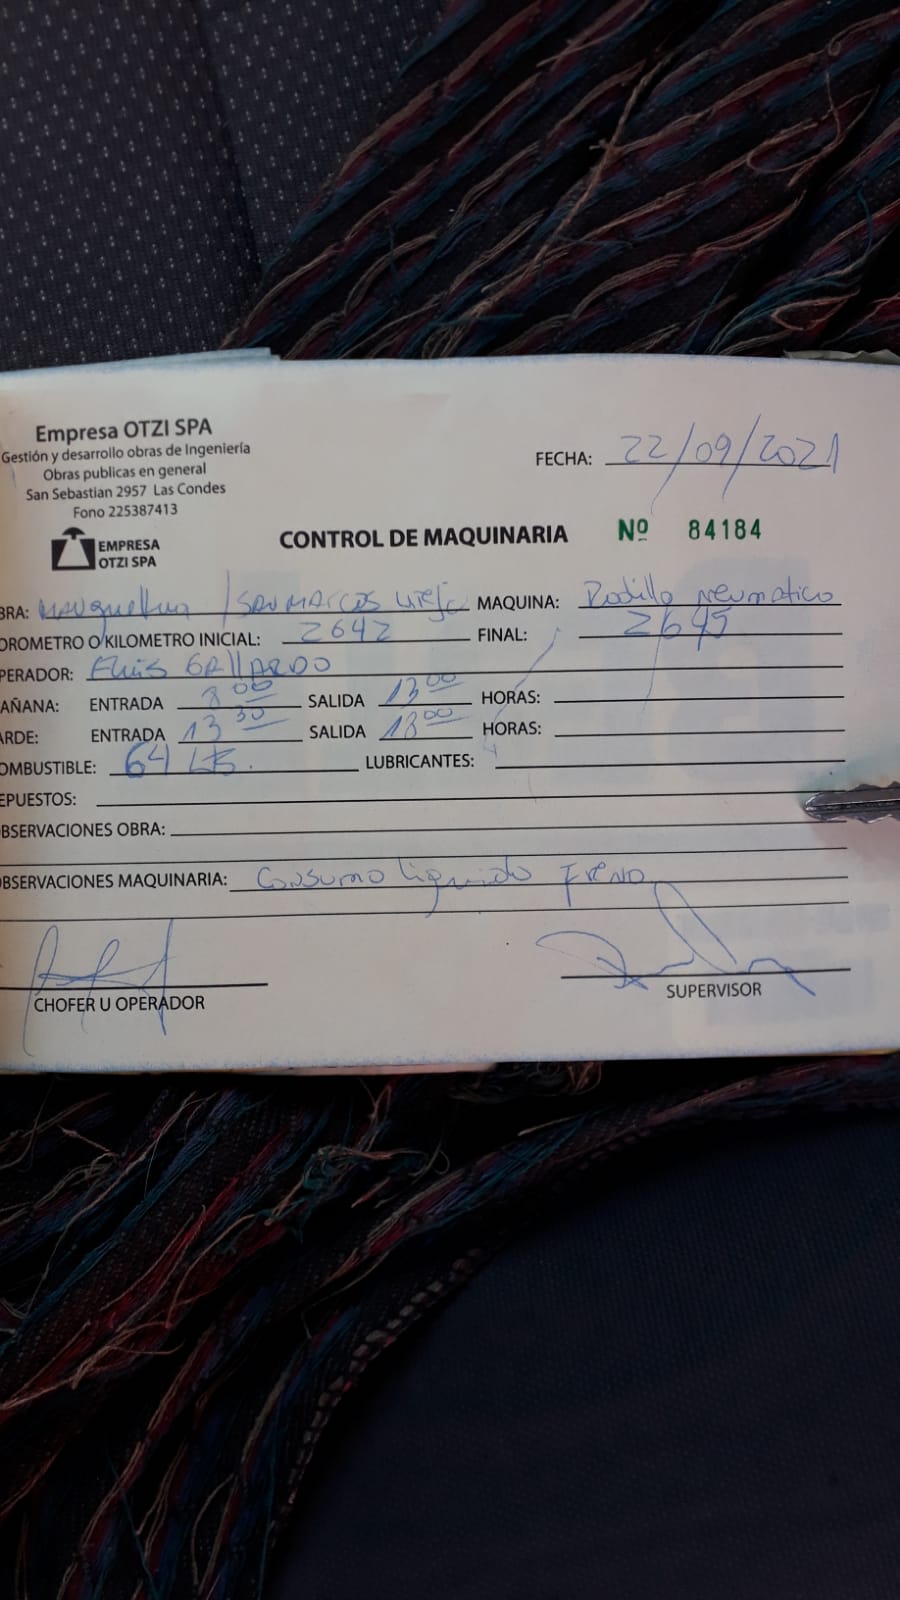 Empresa OTZI SPA
Gestión y desarrollo obras de Ingeniería
Obras publicas en general
San Sebastian 2957 Las Condes
Fono 225387413
EMPRESA
OTZI SPA
FECHA: 22/09/2021
CONTROL DE MAQUINARIA Nº 84184
BRA: MAQUINA: Rodillo Neumatico
OROMETRO O KILOMETRO INICIAL: 2642 FINAL: 2645
PERADOR: GALLARDO
AÑANA: ENTRADA 8 00 SALIDA 13 00 HORAS:
ARDE: ENTRADA 13 30 SALIDA 18 00 HORAS:
OMBUSTIBLE: 64 LTS. LUBRICANTES:
EPUESTOS:
BSERVACIONES OBRA:
BSERVACIONES MAQUINARIA: Consumo liquido FRENO
CHOFER U OPERADOR
SUPERVISOR